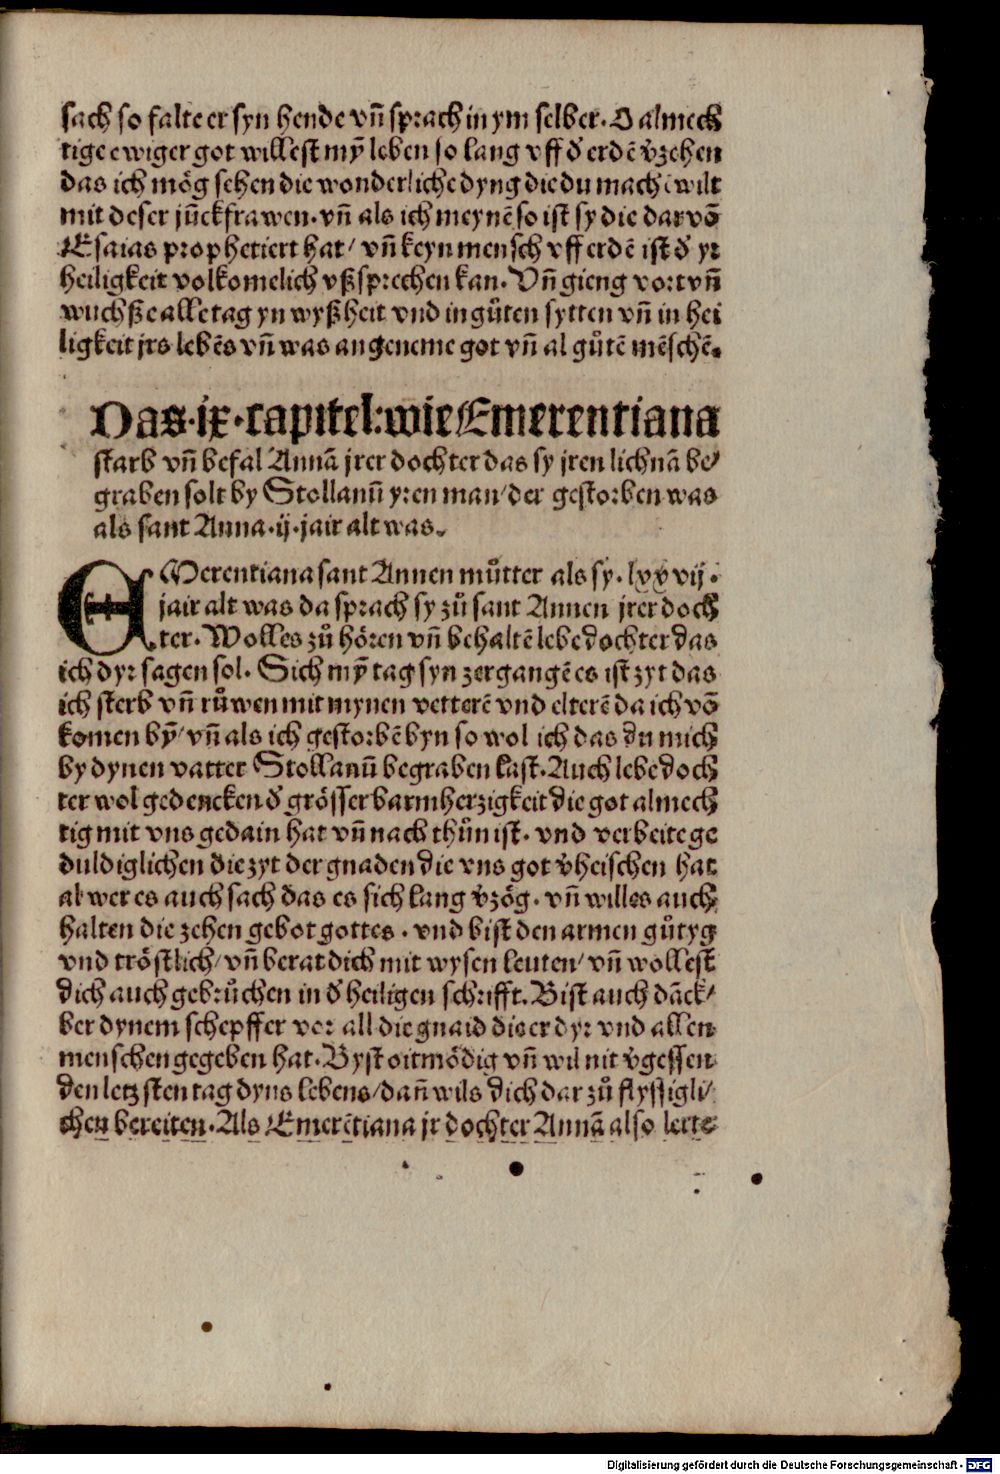 sach so falte er syn hende vñ sprach in ym selber. O almech
tige ewiger got willest mȳ leben so lang vff d̕ erdē v̕zehen
das ich mög sehen die wonderliche dyng die du machē wilt
mit deser jūckfrawen. vñ als ich meynē so ist sy die dar võ
Esaias prophetiert hat/ vñ keyn mensch vff erdē ist d̕ yr
heiligkeit volkomelich vßsprechen kan. Vñ gieng vort vñ
wuchße alle tag yn wyßheit vnd in gůten sytten vñ in hei
ligkeit jrs lebēs vñ was angeneme got vñ al gůtē mēschē.
Das .ix. capitel: wie Emerentiana
starb vñ befal Annā jrer dochter das sy jren lichnā be/
graben solt by Stollanū yren man/ der gestorben was
als sant Anna .ij. jair alt was.
EMerentiana sant Annen můtter als sy .lxxvij.
jair alt was da sprach sy zů sant Annen jrer doch
ter. Wolles zů hören vñ behaltē lebe dochter das
ich dyr sagen sol. Sich mȳ tag syn zergangē es ist zyt das
ich sterb vñ růwen mit mynen vetterē vnd elterē da ich võ
komen bȳ/ vñ als ich gestorbē byn so wol ich das du mich
by dynen vatter Stollanū begraben last. Auch lebe doch
ter wol gedencken d̕ grösser barmherzigkeit die got almech
tig mit vns gedain hat vñ nach thůn ist. vnd verbeite ge
duldiglichen die zyt der gnaden die vns got v̕heischen hat
al wer es auch sach das es sich lang v̕zög. vñ willes auch
halten die zehen gebot gottes. vnd bist den armen gůtyg
vnd tröstlich/ vñ berat dich mit wysen leuten/ vñ wollest
dich auch gebrůchen in d̕ heiligen schrifft. Bist auch dāck/
ber dynem schepffer vor all die gnaid die er dyr vnd allen
menschen gegeben hat. Byst oitmödig vñ wil nit v̕gessen
den letzsten tag dyns lebens/ dañ wils dich dar zů flyssigli/
chen bereiten. Als Emerētiana jr dochter Annā also lerte
Digitalisierung gefördert durch die Deutsche Forschungsgemeinschaft - DFG